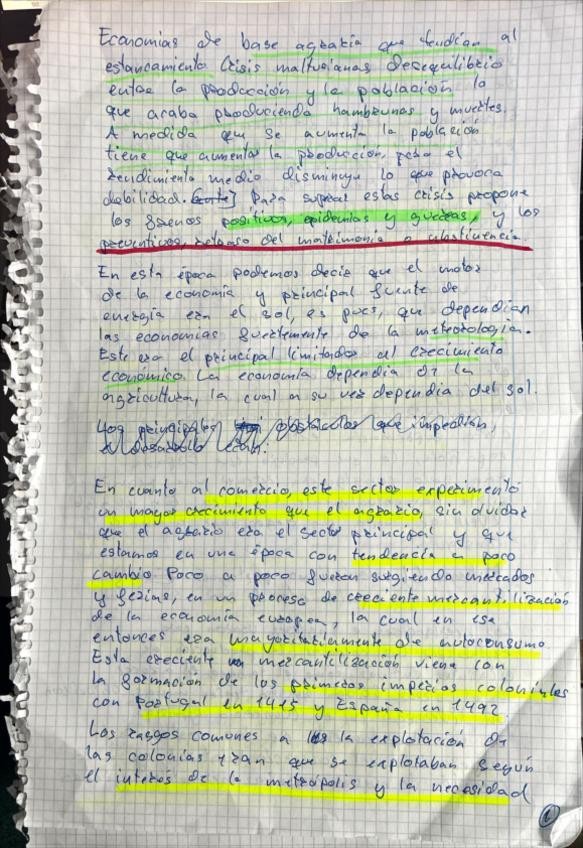 Economías de base agraria que tendían al
estancamiento Crisis maltusianas desequilibrio
entre la producción y la población lo
que acaba produciendo hambrunas y muertes.
A medida que se aumenta la población
tiene que aumentar la producción, pero el
rendimiento medio disminuye lo que provoca
debilidad. Para superar estas crisis propone
los frenos positivos, epidemias y guerras, y los
preventivos, retraso del matrimonio o abstinencia
En esta época podemos decir que el motor
de la economía y principal fuente de
energía era el sol, es pues, que dependían
las economías fuertemente de la meteorología.
Este era el principal limitador al crecimiento
económico. La economía dependía de la
agricultura, la cual a su vez dependía del sol.
Los principales obstáculos que impedían,
En cuanto al comercio, este sector experimentó
un mayor crecimiento que el agrario, sin olvidar
que el agrario era el sector principal y que
estamos en una época con tendencia a poco
cambio. Poco a poco fueron surgiendo mercados
y ferias, en un proceso de creciente mercantilización
de la economía europea, la cual en ese
entonces era mayoritariamente de autoconsumo.
Esta creciente mercantilización viene con
la formación de los primeros imperios coloniales
con Portugal en 1415 y España en 1492
Los rasgos comunes a la explotación de
las colonias eran que se explotaban según
el interés de la metrópolis y la necesidad
1